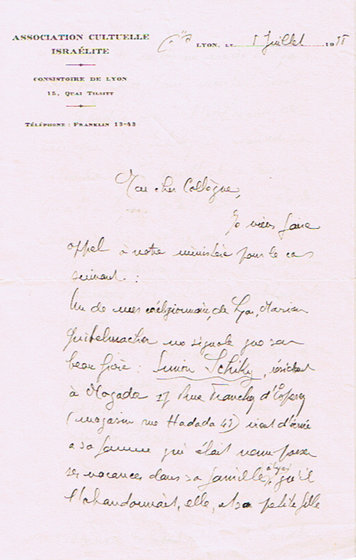 ASSOCIATION CULTUELLE
ISRAÉLITE
CONSISTOIRE DE LYON
15, QUAI TILSITT
TÉLÉPHONE : FRANKLIN 13-43
LYON, LE 5 Juillet 19
Mon cher Collègue,
Je viens faire
appel à votre ministère pour le cas
suivant :
Un de mes coreligionnaires, de Lyon,
me signale que son
beau frère : Simon résidant
à Mogador 17 Rue Franchet d'Esperey
(magasin rue Hadada 43) vient d'écrire
à sa femme qui était venue passer
ses vacances dans sa famille à Lyon qu'il
l'abandonnait, elle, et sa petite fille